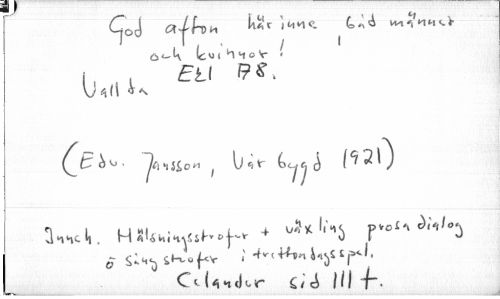 God afton härinne, båd männer
och kvinnor!
Vallda EEl P8.
(Edv. Jansson, Vår bygd 1921)
Inneh. Hälsningsstrofer + växling prosadialog
o sångstrofer i trettondagsspel.
Celander sid III f.